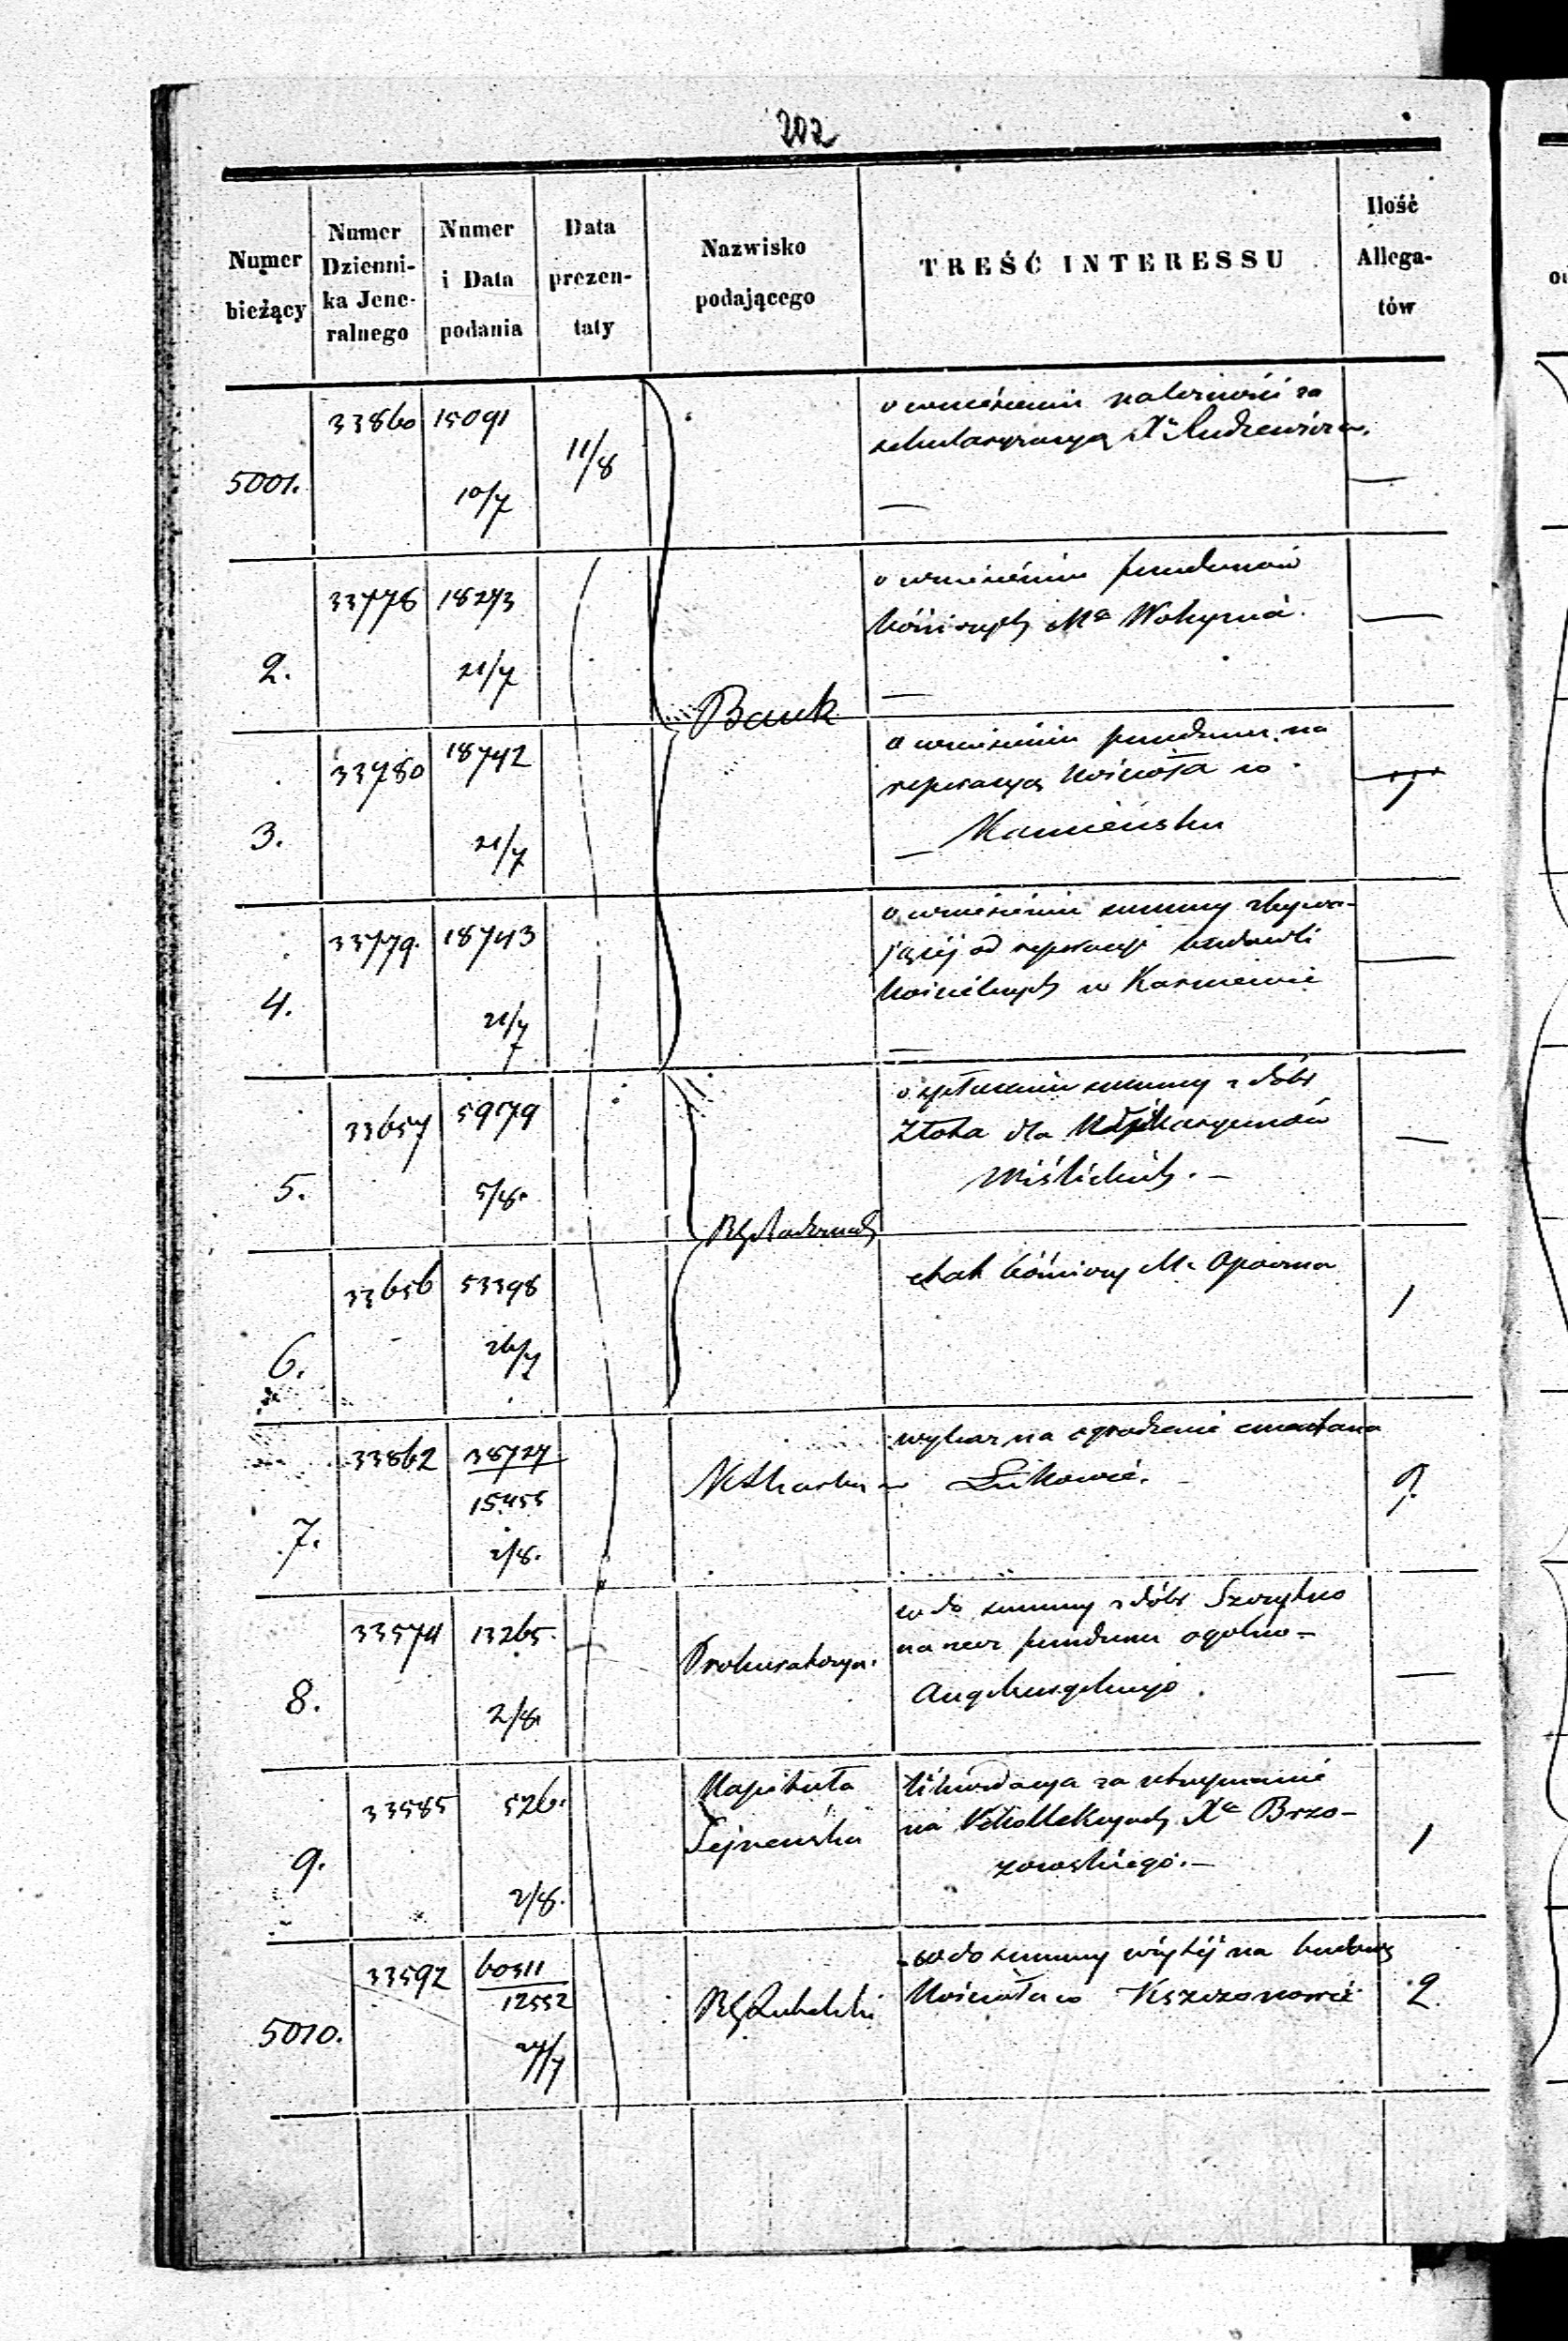 202
Numer bieżący
Numer Dzienni- ka Jene- ralnego
Numer i Data podania
Data prezen- taty
Nazwisko podającego
TREŚĆ INTERESSU
Ilość Allega- tów
5001.
33860
15091
10/7
11/8
Bank
o wniesieniu należności za
sekularyzacyą Xa Rudzewicza.
—
—
2.
33778
18273
21/7
o wniesieniu funduszów
kośćnych Ma Wohynia.
—
—
3.
33780
18742
21/7
o wniesieniu funduszu na
reperacyą kościoła w
— Kamieńsku
4.
33779.
18743
21/7
o wniesieniu summy zbywa-
jącéj od reperacyi budowli
kościelnych w Karniewie
—
—
5.
33657
59179
5/8.
RG Radomski
o spłaceniu summy z dóbr
Złota dla Wikaryuszów
Wiślickich. —
—
6.
33656
53398
26/7
etat bóżniczy M. Opoczna
1
7.
33862
38727
15455
2/8.
wykaz na ogrodzenie cmentarza
w Lukowie.
9.
8.
33574
13265.
2/8.
Prokuratorya.
co do summy z dóbr Szczytno
na rzecz funduszu ogólno-
Augsburgskiego.
—
9.
33585
526.
2/8.
Kapituła
Sejneńska
likwidacya za utrzymanie
na rekollekcyach Xa Brzo-
zowskiego. —
1
5010.
33592
60311
12552
27/7
RG Lubelski
co do summy wziętéj na budowę
kościoła w Kszczonowie
2.